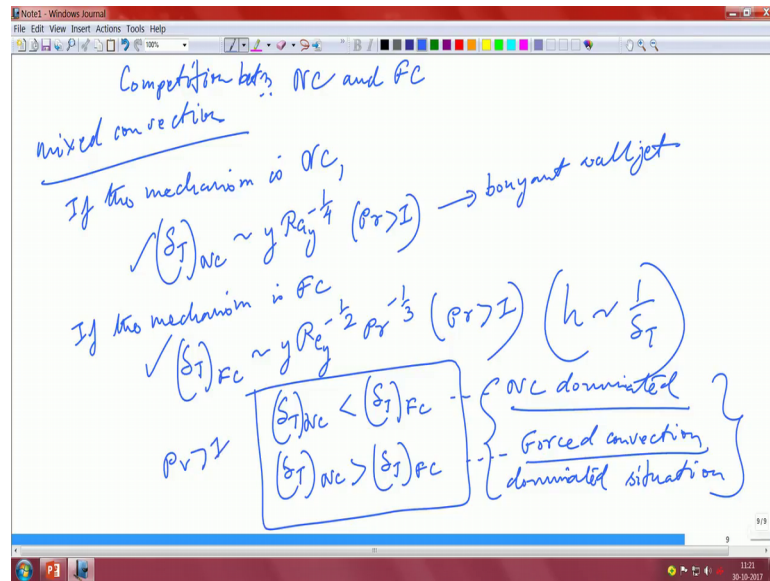 Note1 - Windows Journal
File Edit View Insert Actions Tools Help
100%
Competition betn NC and FC
mixed convection
If the mechanism is NC,
✓(δT)NC ~ y Ray^-1/4 (Pr>1) → bouyant wall jet
If the mechanism is FC
✓(δT)FC ~ y Rey^-1/2 Pr^-1/3 (Pr>1) (h ~ 1/δT)
(δT)NC < (δT)FC --- NC dominated
Pr>1
(δT)NC > (δT)FC ---- Forced convection
dominated situation
9/9
9
11:21
30-10-2017